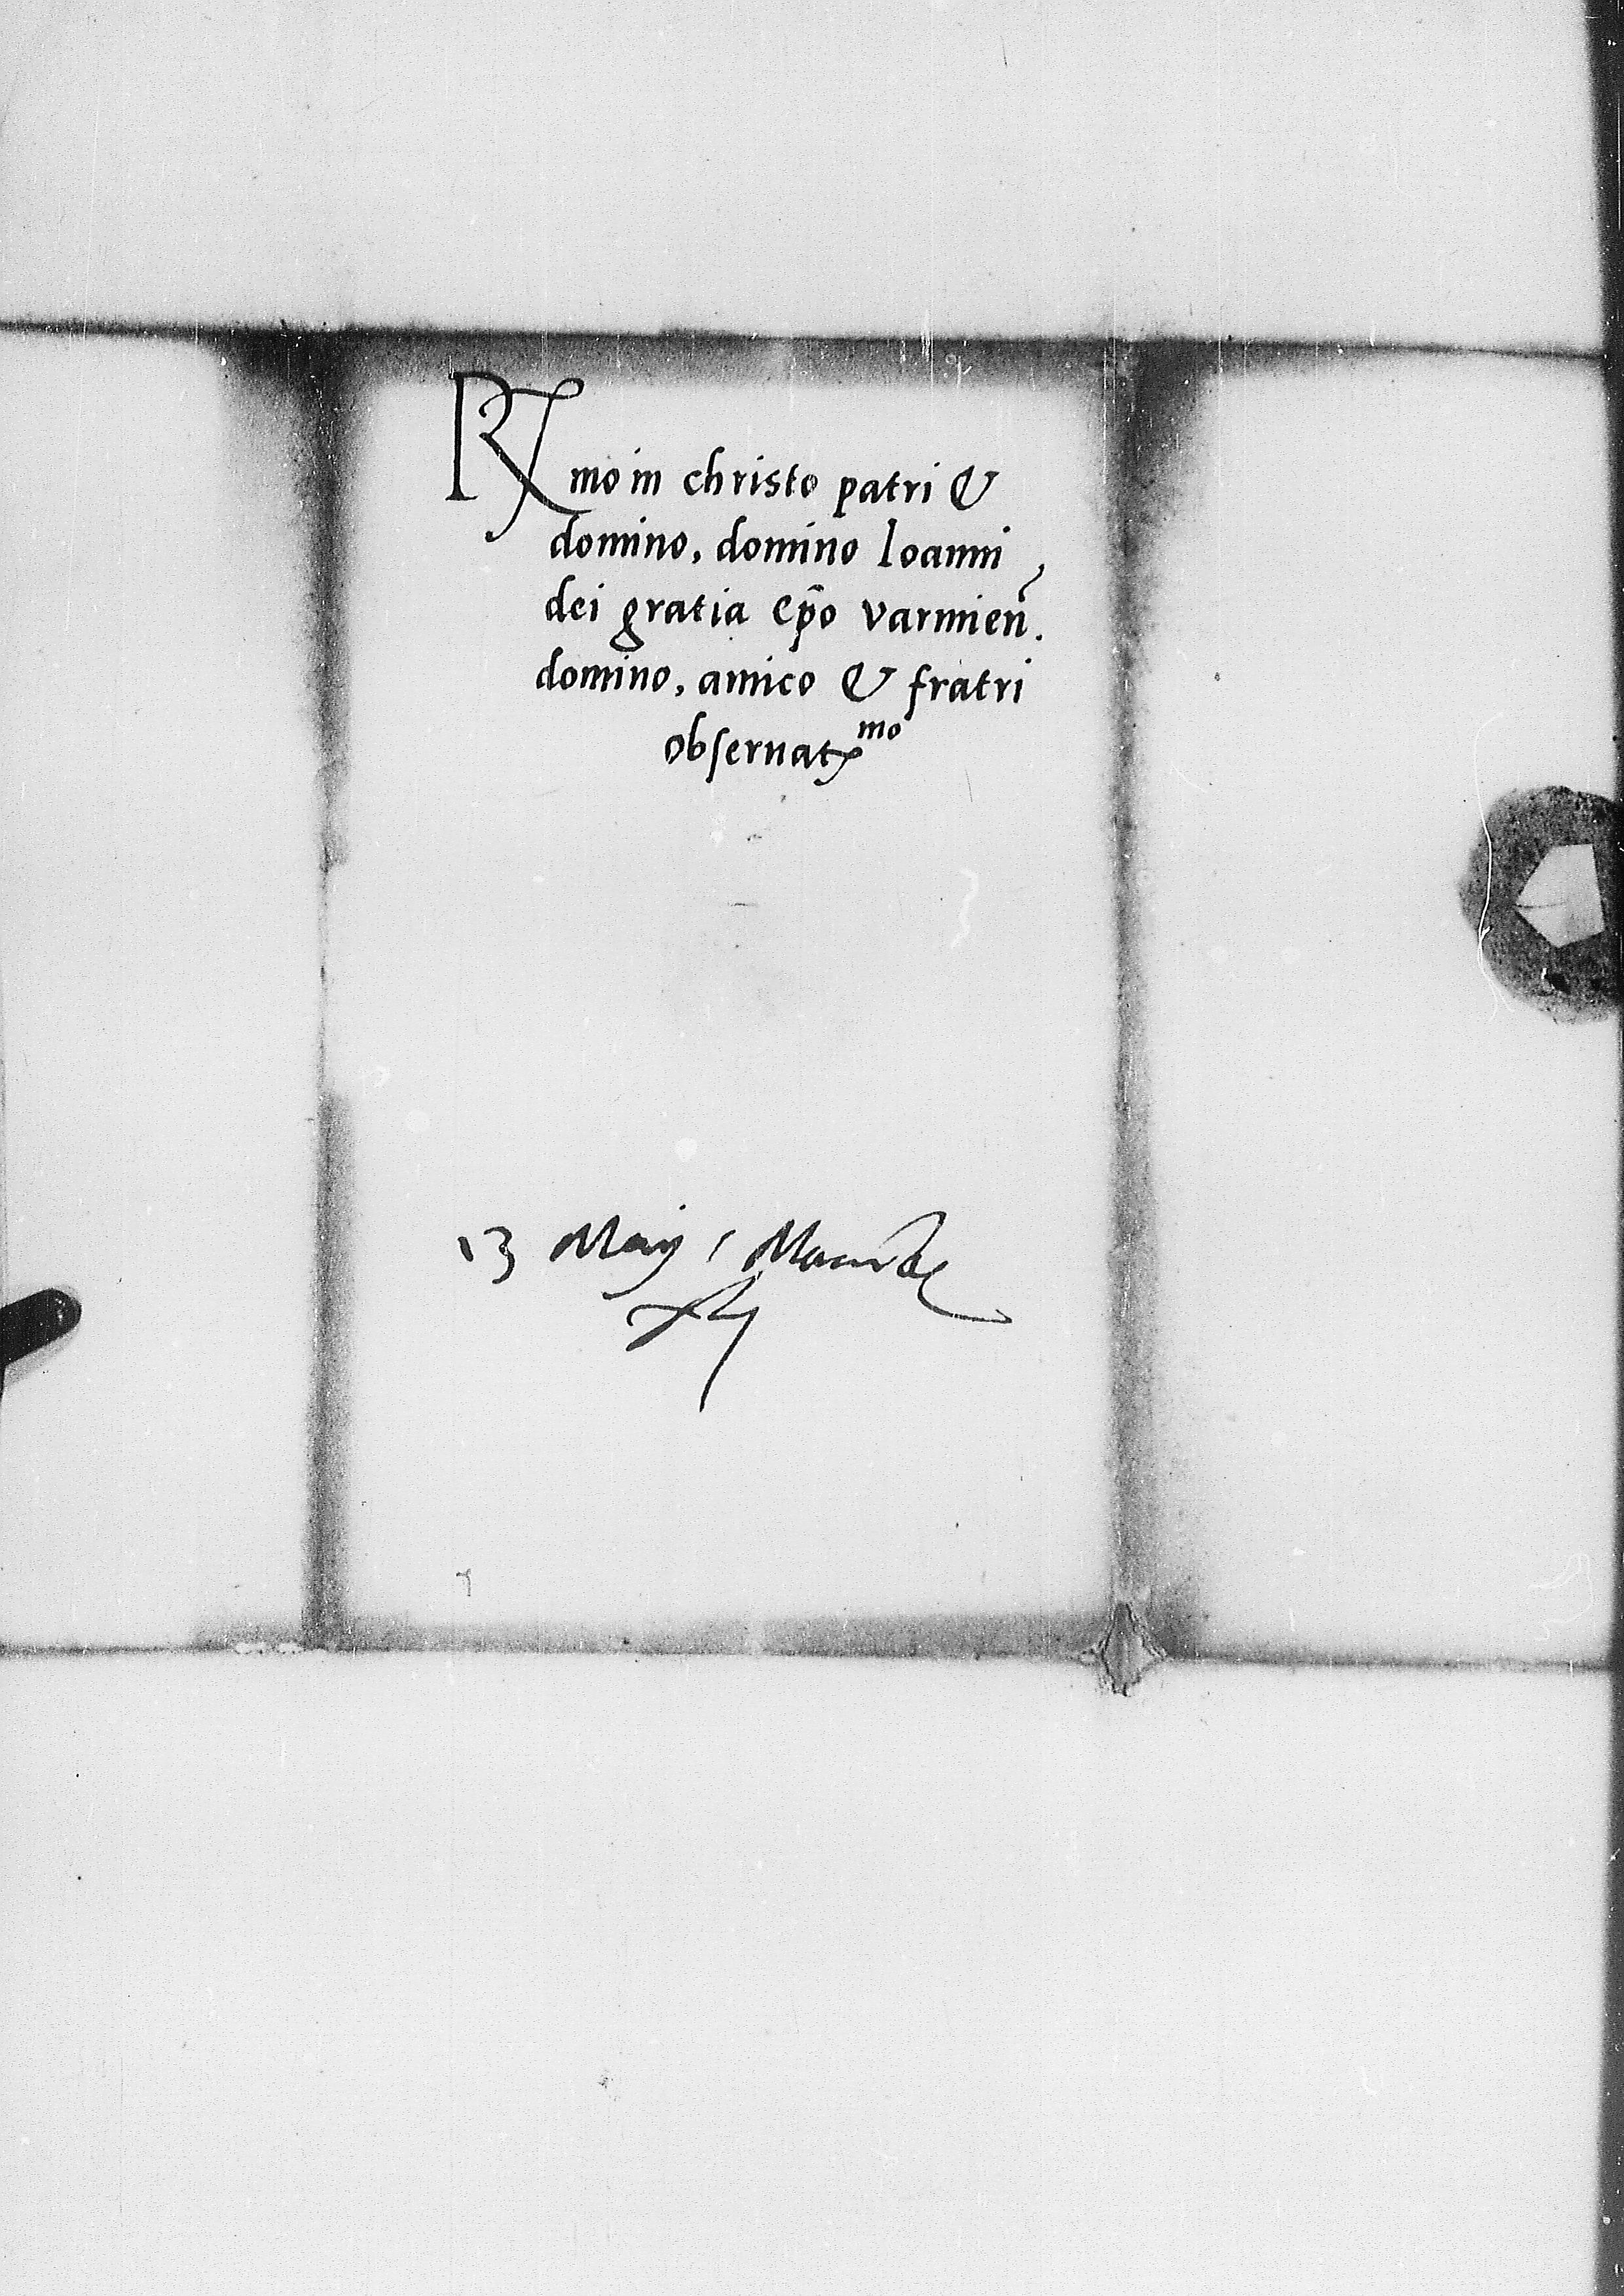 Rmo in christo patri &
domino, domino Ioanni,
dei gratia Epo varmien̄.
domino, amico & fratri
obseruatmo
13 Maij